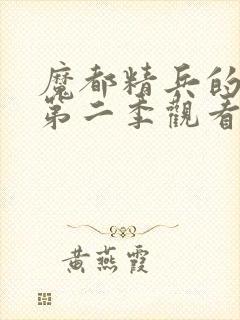 魔都精兵的
第二季觀看
黃燕霞